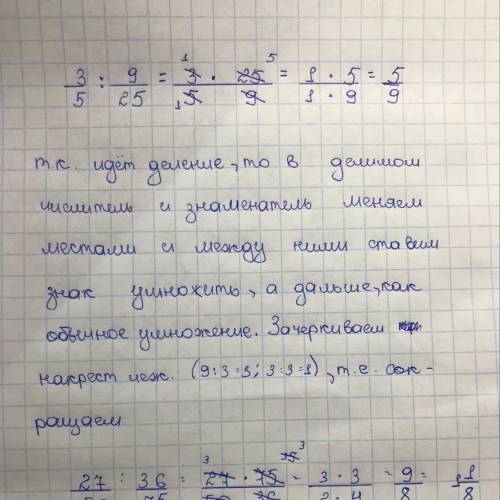 3/5 : 9/25 = 3 · 25 / 5 · 9 = 1 · 5 / 1 · 9 = 5/9
т.к. идёт деление, то в делимом
числитель и знаменатель меняем
местами и между ними ставим
знак умножить, а дальше, как
обычное умножение. Зачеркиваем
накрест неж. (9:3=3; 3:3=1), т.е. сок-
ращаем
27 : 36 = 27 · 75 = 3 · 3 = 9 = 1 1